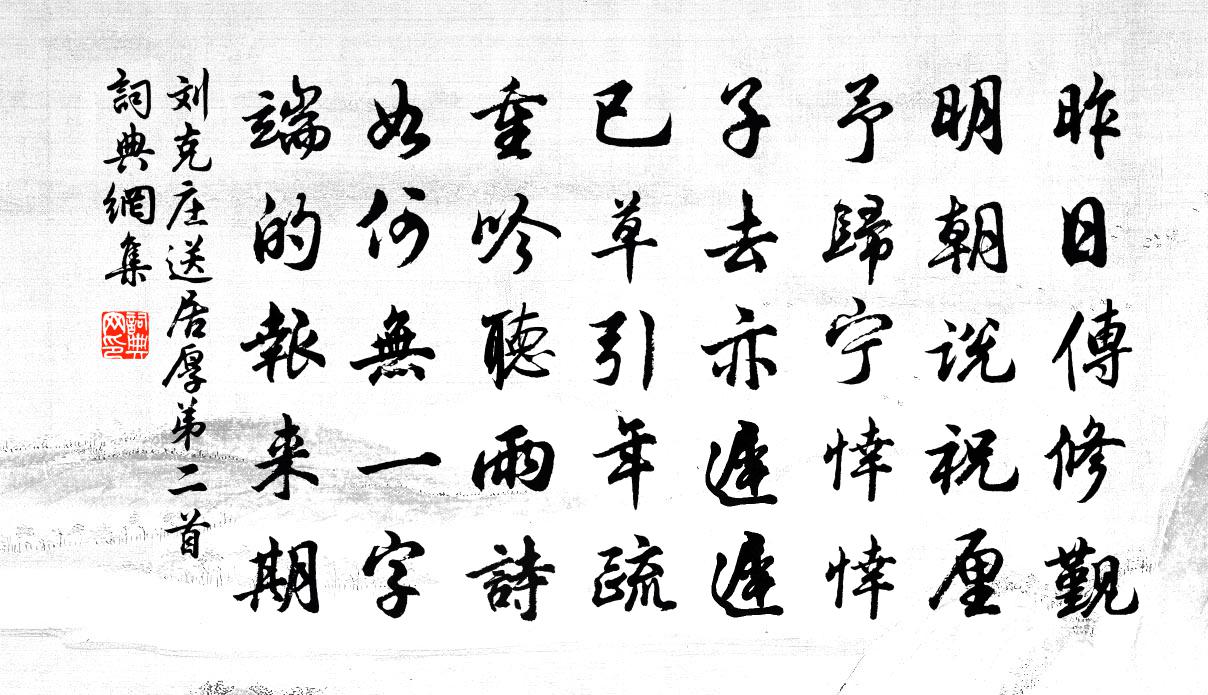 昨日傳修觐
明朝説祝厘
予歸宁悻悻
子去亦遲遲
已草引年疏
重吟聽雨詩
如何無一字
端的報来期
刘克庄送居厚弟二首
詞典網集
詞典网印